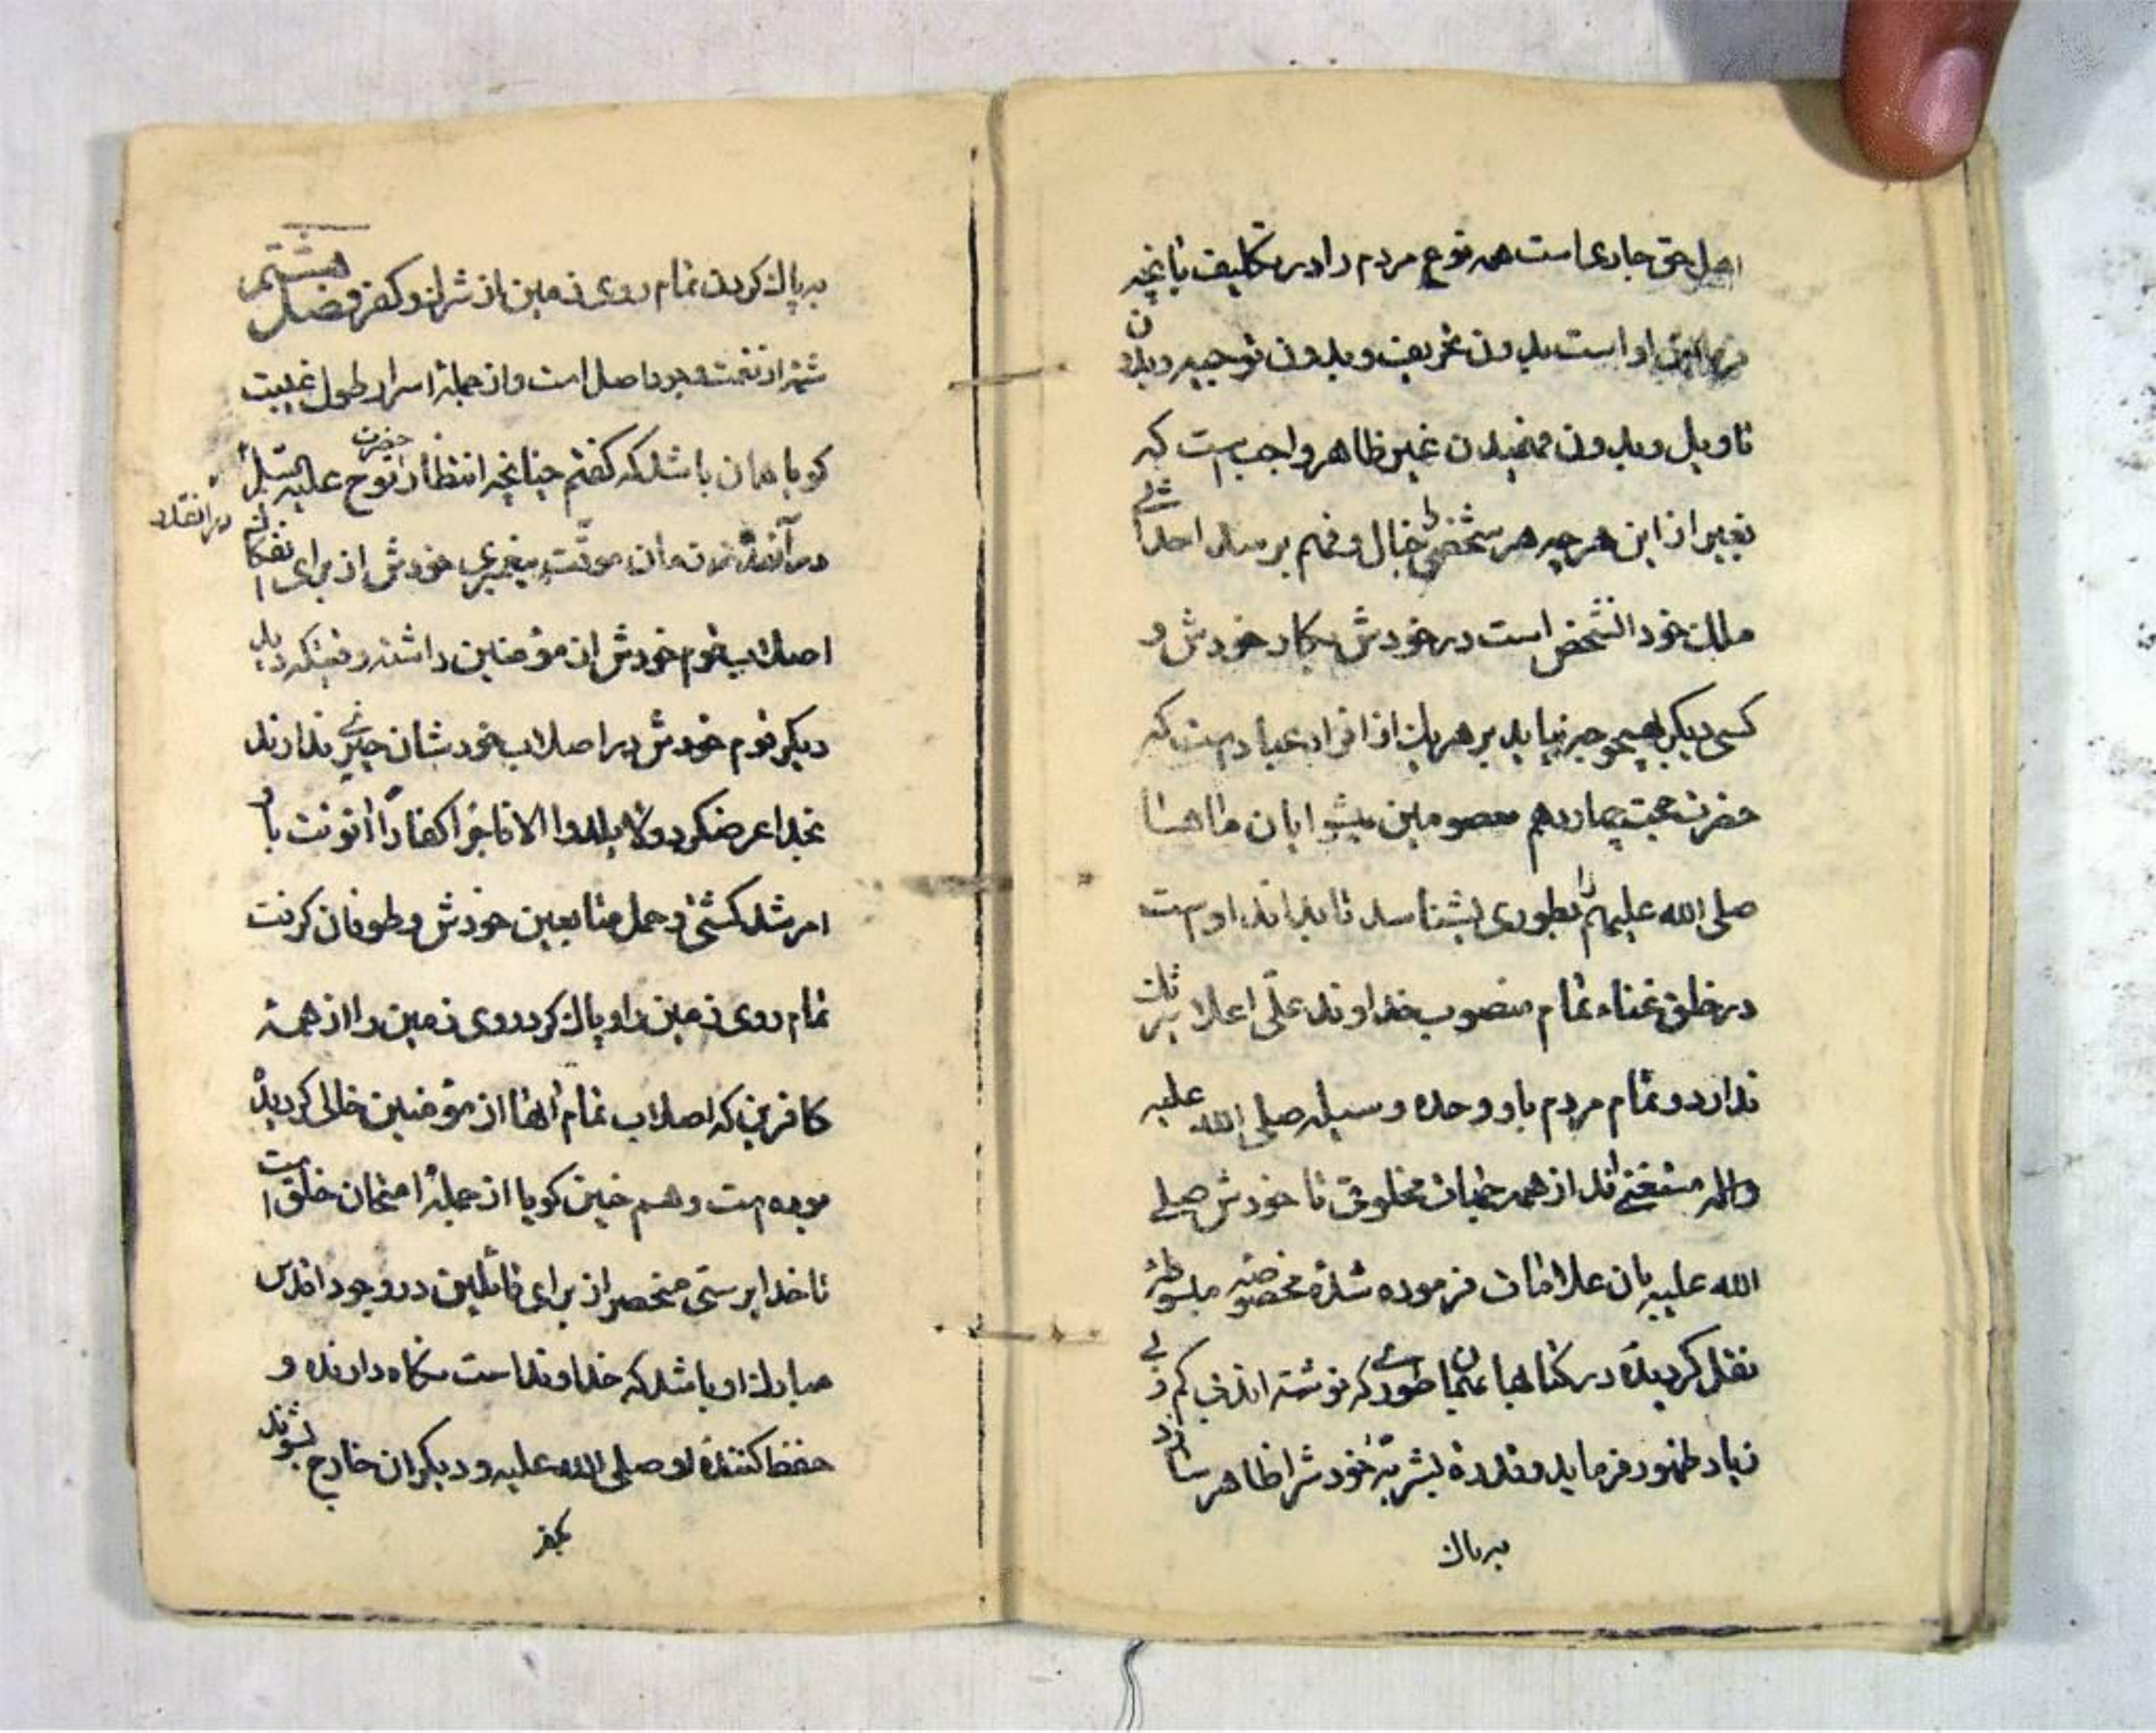 اهل حق جاری است همه نوع مردم را در تکلیف بانچه
او است بدون تحریف و بدون توجیه و بدون
تاویل و بدون فهمیدن غیر ظاهر واجب است که
بغیر از این هر چه هر شخصی خیال و فهم برساند احدی
خود الشخص است در خودش بکار خودش و
کسی دیگر بهیچوجه نیاید بر هر یک از افراد عباد است که
حضرت حجت چهاردهم معصومین پیشوایان ما
صلی الله علیهم را بطوری بشناسد تا بداند او است
در خلق تمام منصوب خداوند علی اعلا
ندارد و تمام مردم باو وحده وسیله صلی الله علیه
واله مستغنی اند از همه مخلوق تا خودش صلی
الله علیه بان علامات فرموده شدهٔ مخصوصه
نقل گردیده در کتابها طوری که نوشته اند بی کم و بی
زیاد ظهور فرماید و قدرة بشریهٔ خودش را ظاهر سازد
به پاک
به پاک کردن تمام روی زمین از شرک و کفر فصل هشتم
است و از جملهٔ اسرار طول غیبت
گویا همان باشد که گفتم چنانچه انتظار حضرت نوح علیه السلام
در زمان موقت پیغمبری خودش از برای
اصلاب قوم خودش از مؤمنین داشته وقتیکه دید
دیگر قوم خودش در اصلاب خودشان چیزی ندارند
بخدا عرض کرد ولا یلدوا الا فاجرا کفارا انوقت باو
امر شد کشتی و حمل متابعین خودش و طوفان گرفت
تمام روی زمین را و پاک کرد روی زمین را از همهٔ
کافرین که اصلاب تمام آنها از مؤمنین خالی گردیده
بوده است و هم چنین گویا از جملهٔ امتحان خلق است
تا خدا پرستی منحصر از برای قائلین در وجود اقدس
مبارک او باشد که خداوند است نگاه دارنده و
حفظ کنندهٔ او صلی الله علیه و دیگران خارج بشوند
بکفر